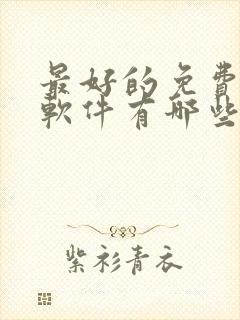 最好的免費
軟件有哪些
紫衫青衣